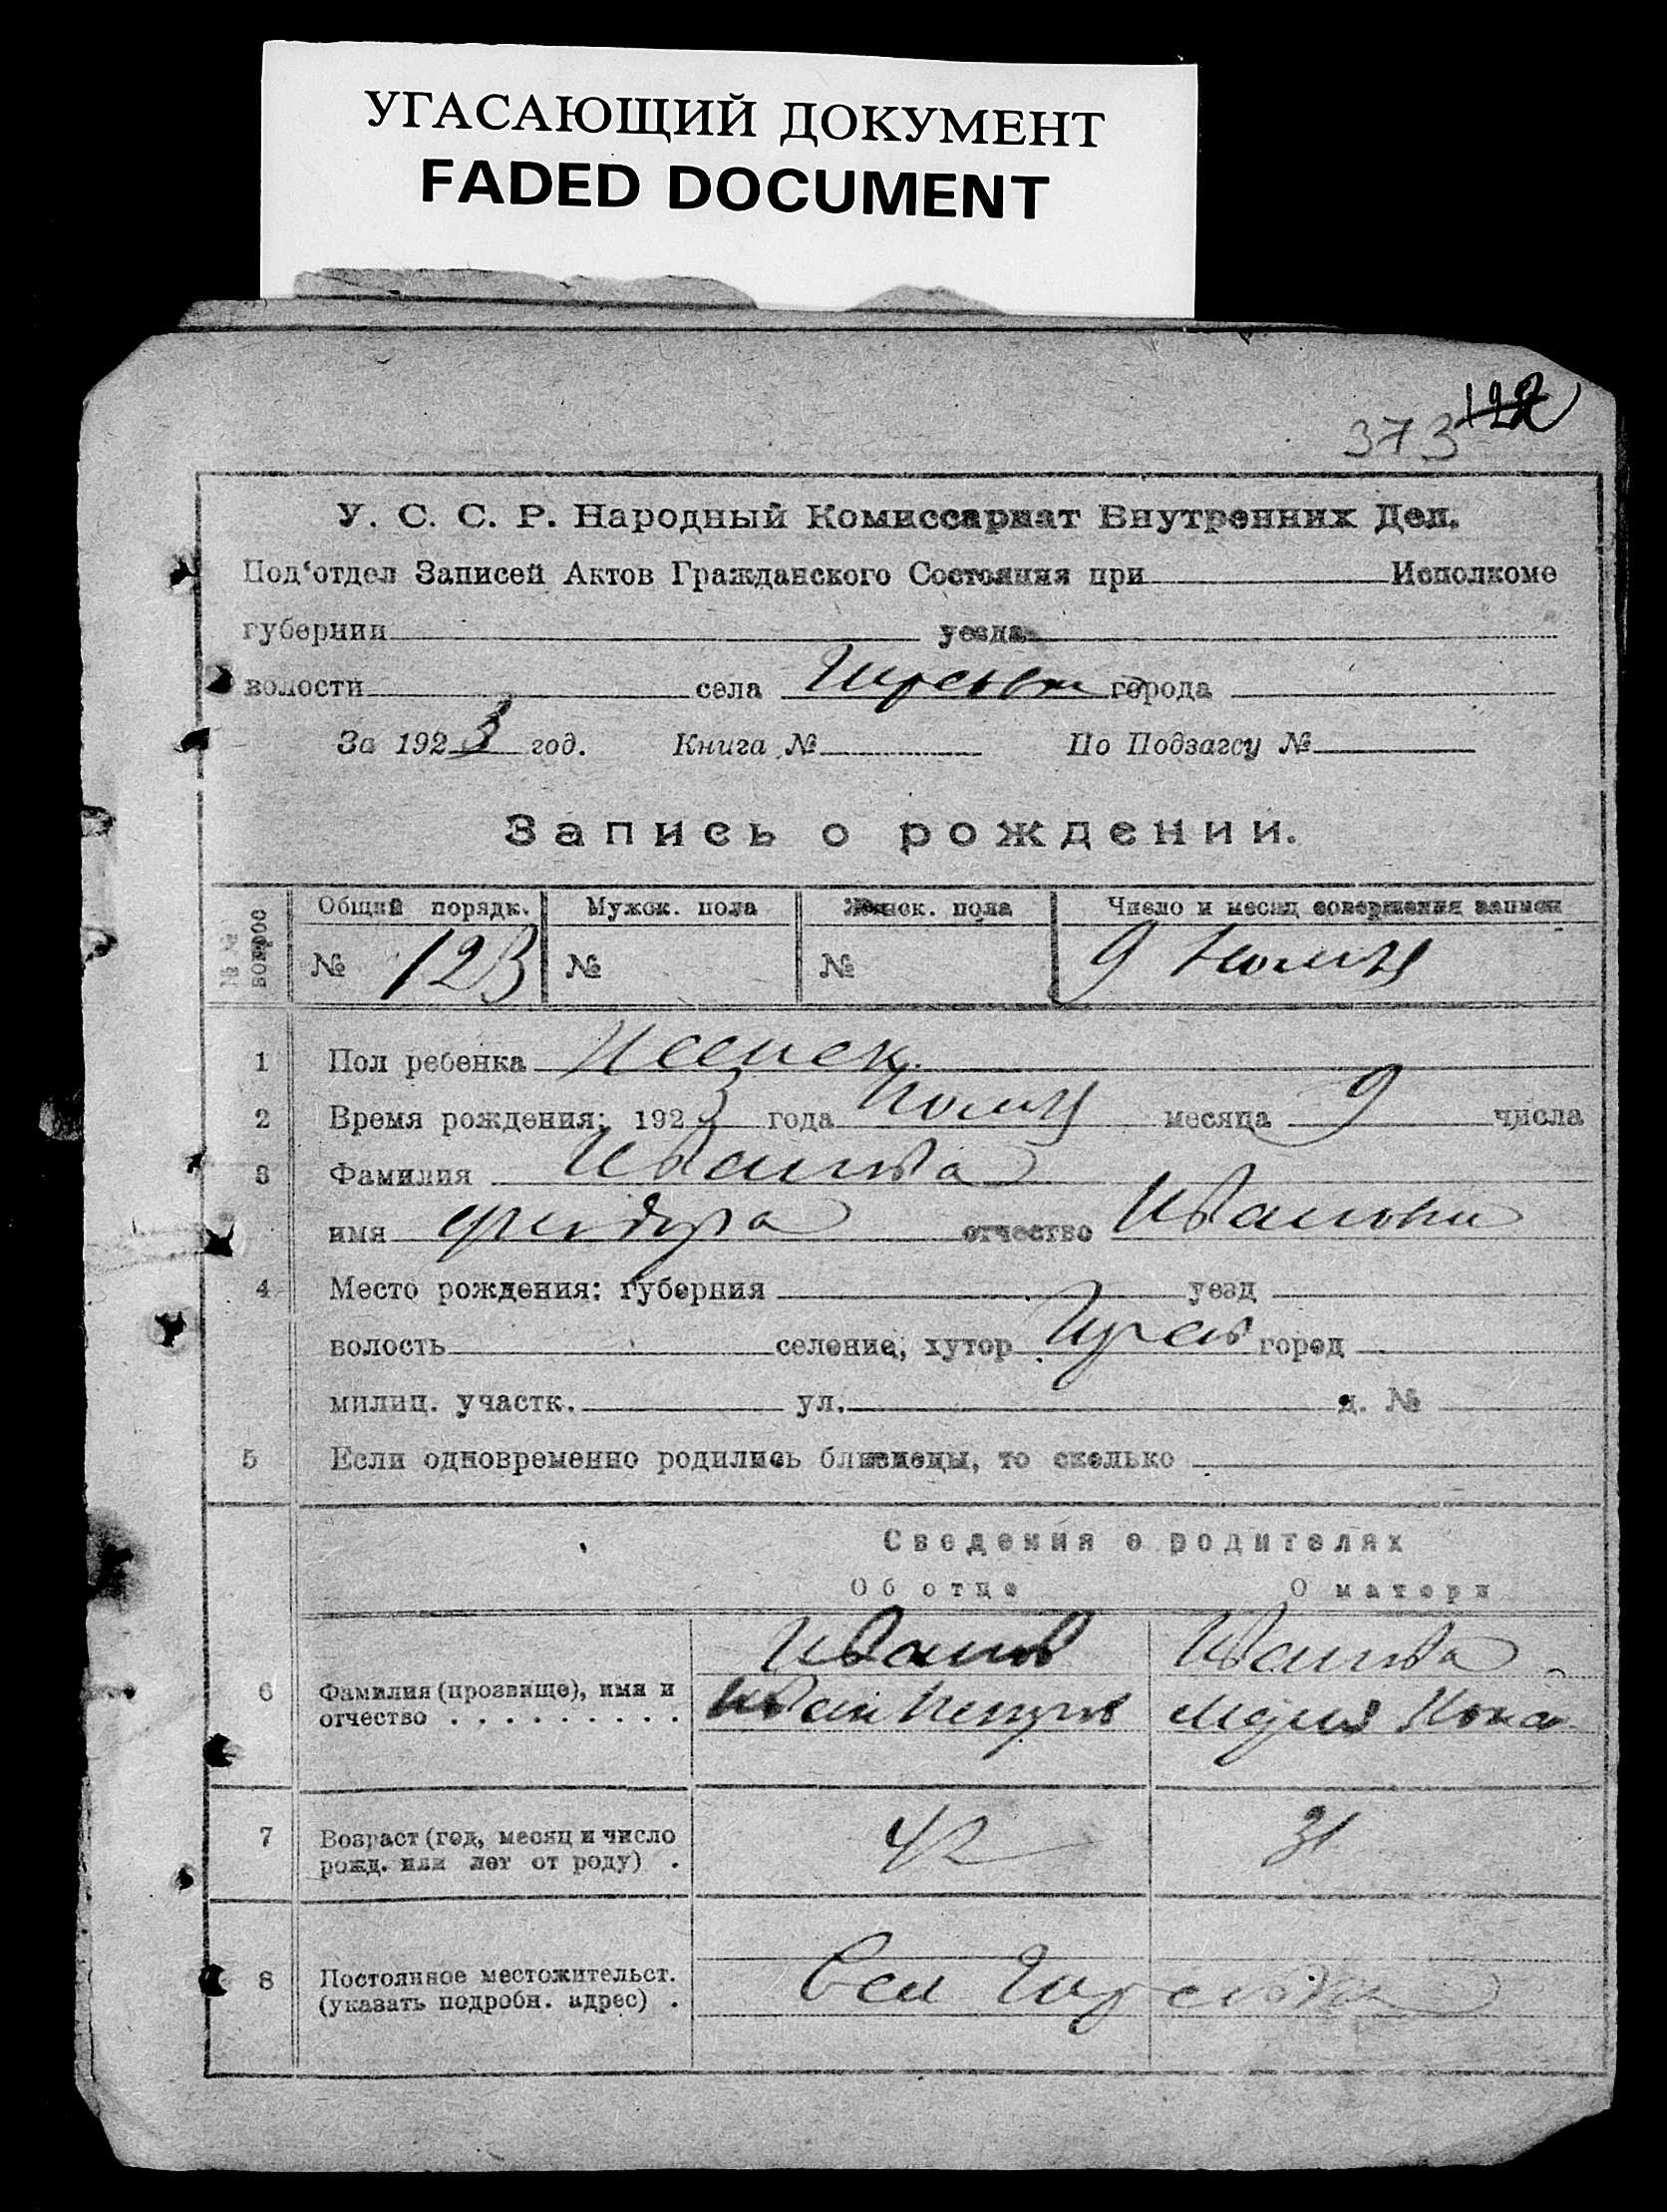 УГАСАЮЩИЙ ДОКУМЕНТ
FADED DOCUMENT
122
373
У. С. С. Р. Народный Комиссариат Внутренних Дел.
Под‘отдел Записей Актов Гражданского Состояния при Исполкоме
губернии уезда
волости села города
За 1923 год. Книга № По Подзагсу №
Запись о рождении.
№№ вопрос
Общий порядк. Мужск. пола Женск. пола Число и месяц совершения записи
№ 123 № № 9
1 Пол ребенка
2 Время рождения: 1923 года месяца 9 числа
3 Фамилия Иванова
имя отчество Иванови
4 Место рождения: губерния уезд
волость селение, хутор город
милиц. участк. ул. д. №
5 Если одновременно родились близнецы, то сколько
Сведения о родителях
Об отце О матери
Иванов Иванова
6 Фамилия (прозвище), имя и Иван
отчество . . . . . . . . .
7 Возраст (год, месяц и число 42 31
рожд. или лет от роду) .
8 Постоянное местожительст.
(указать подробн. адрес) .